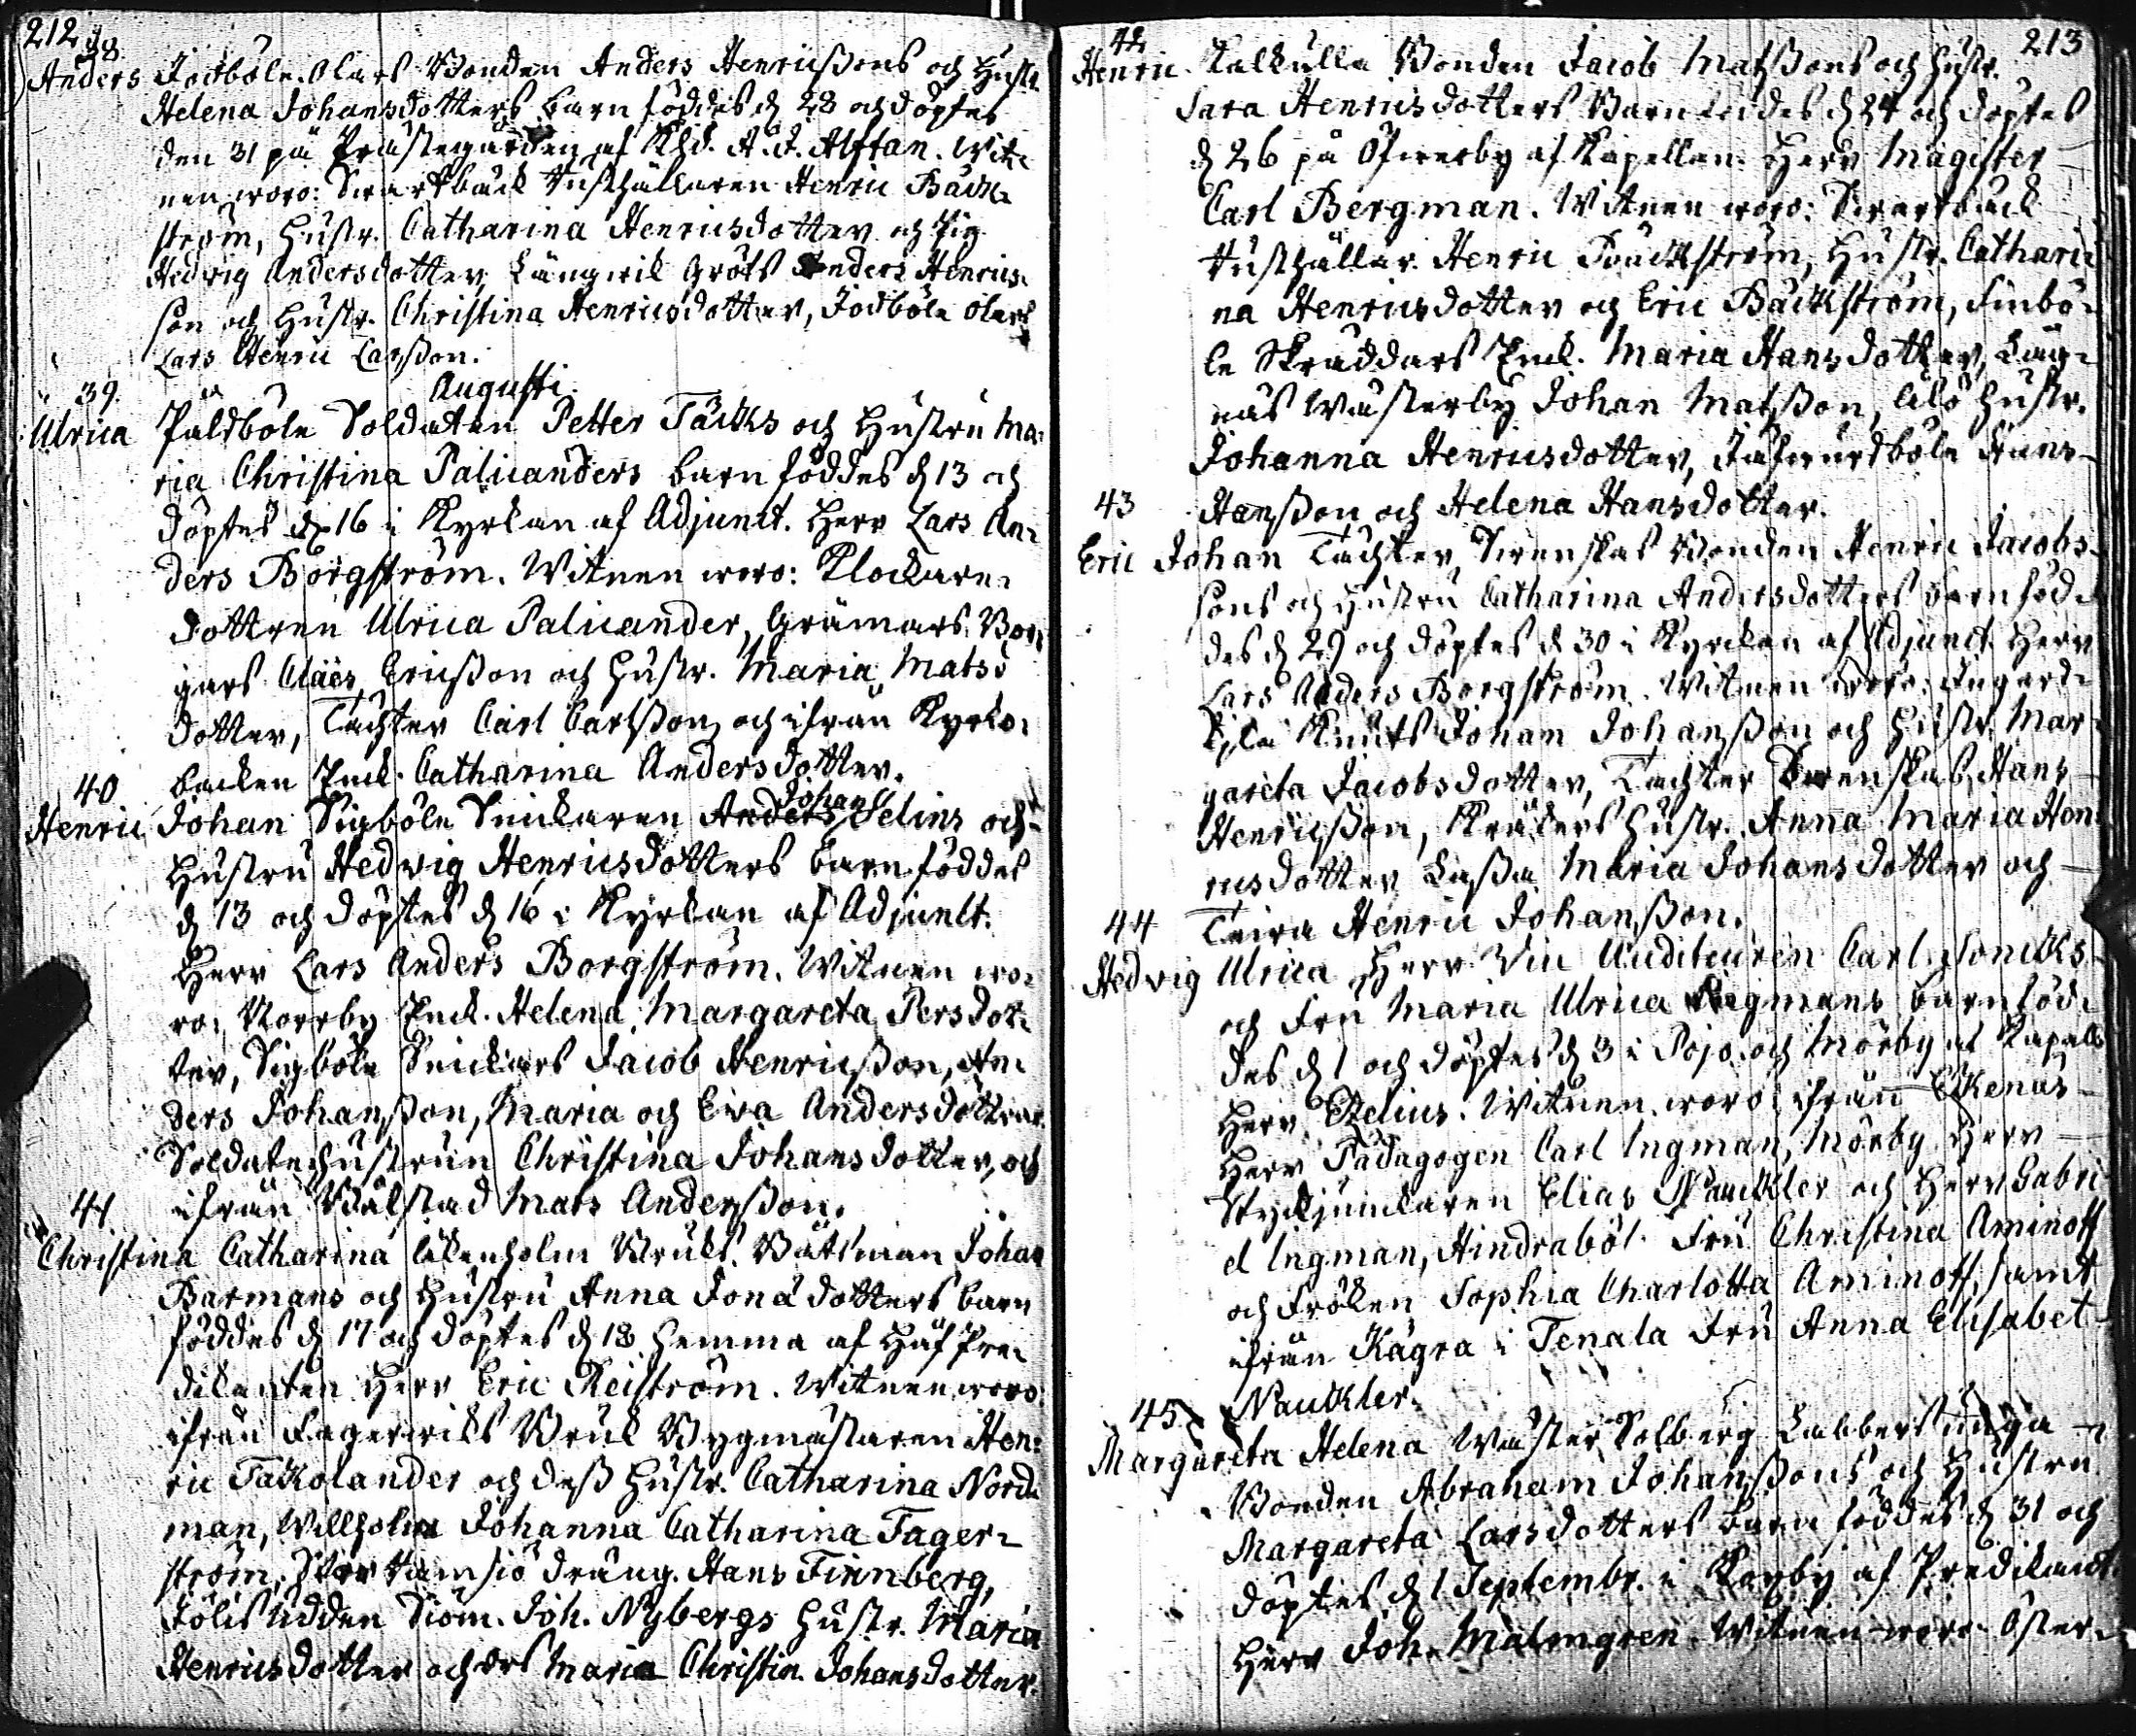 212
38
Anders Jodböle Olars Bonden Anders Henricssons och Hustr.
Helena Johansdotters barn föddes d 28 och döptes
den 31 på Prästegården af A. J. Alftan. Wit-
nen woro: Swartbäck Rusthållaren Henric Bäck-
ström, Hustr. Catharina Henricsdotter och Pig.
Hedvig Andersdotter, Långwik Gröts Anders Henrics-
son och Hustr. Christina Henricsdotter, Jodböle Olars
Lars Henric Larsson.
Augusti.
39.
Ulrica Påldböle Soldaten Petter Täcks och Hustru Ma-
ria Christina Palicanders barn föddes d 13 och
döptes d 16 i Kyrkan af Adjunct. Herr Lars An-
ders Borgström. Witnen woro: Klockare-
dottren Ulrica Palicander, Gråmars
Ericsson och Hustr. Maria Mats-
dotter, Täckter Carl Carlsson och ifrån Kyrko-
backen Enck. Catharina Andersdotter.
40
Johan
Henric Johan Sigböle Snickaren Anders Selins och
Hustru Hedvig Henricsdotters barn föddes
d 13 och döptes d 16 i Kyrkan af Adjunct.
Herr Lars Anders Borgström. Witnen wo-
ro: Norrby Enck. Helena Margareta Persdot-
ter, Sigböle Snickars Jacob Henricsson, An-
ders Johansson, Maria och Eva Andersdöttrar
Soldatehustrun Christina Johansdotter, och
ifrån Bålstad Mats Andersson.
41
Christina Catharina Bruks Båtsman Johan
Barmans och Hustru Anna Jonædotters barn
föddes d 17 och döptes d 18 hemma af Huf Pre-
dikanten Herr Eric Reiström. Witnen woro
ifrån Fagerwiks Bruk Byggmästaren Hen-
ric Tackolander och dess Hustr. Catharina Nord-
man, Willholm Johanna Catharina Fager-
ström, Stor Ramsiö dräng. Hans Finnberg,
udden Siöm. Joh. Nybergs Hustr. Maria
Henricsdotter och Maria Christin. Johansdotter.
213
42
Henric Kalkulla Bonden Jacob Matssons och Hustr.
Sara Henricsdotters Barn föddes d 24 och döptes
d 26 på Öfwerby af Kapellan. Herr Magister
Carl Bergman. Witnen woro: Swartbäck
Rusthållar. Henric Bäckström, Hustr. Cathari-
na Henricsdotter och Eric Bäckström, Finbö-
le Skräddars Enck. Maria Hansdotter,
näs Wästerby Johan Matsson, Alö Hustr.
Johanna Henricsdotter, Hans
43 Hansson och Helena Hansdotter.
Eric Johan Täckter, Swenskas Bonden Henric Jacobs-
sons och Hustru Catharina Andersdotters barn föd-
des d 29 och döptes d 30 i Kyrckan af Adjunct. Herr
Lars Anders Borgström. Witnen woro: Ingerd-
kyla Knuts Johan Johansson och Hustr. Mar-
gareta Jacobsdotter, Täckter Swenskas Hans
Henricsson, Kräkers Hustr. Anna Maria Hen-
ricsdotter, Maria Johansdotter och
44 Henric Johansson.
Hedvig Ulrica Herr Vice Auditeuren Carl
och Fru Maria Ulrica Ingmans barn föd-
des d 1 och döptes d 3 i Pojo och Mörby af Kapell.
Herr Ezelius. Witnen woro: ifrån Ekenäs
Herr Pædagogen Carl Ingman, Mörby Herr
Styckjunkaren Elias Nauckler och Herr Gabri-
el Ingman, Hindraböl. Fru Christina Aminoff
och Fröken Sophia Charlotta Aminoff, samt
ifrån Kagra i Tenala Fru Anna Elisabet
45 Nauckler.
Margareta Helena Wäster Solberg Labbers unga
Bonden Abraham Johanssons och Hustru
Margareta Larsdotters barn föddes d 31 och
döptes d 1 Septembr. i af Predikant.
Herr Joh. Malmgren. Witnen woro: Öster-